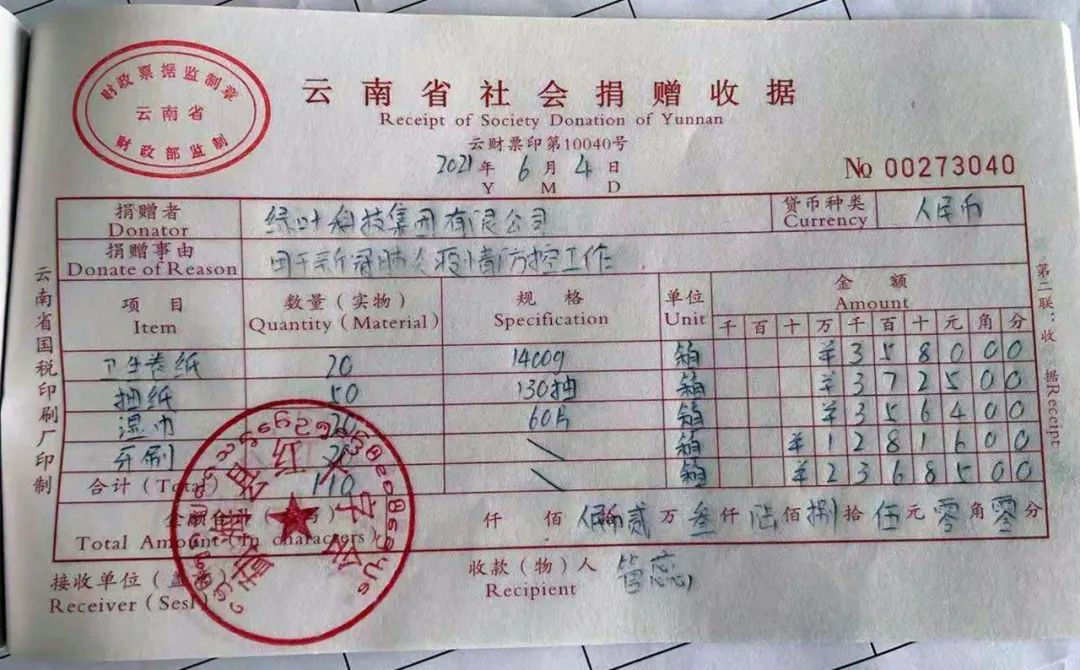 财政票据监制章
云南省
财政部监制
云南省社会捐赠收据
Receipt of Society Donation of Yunnan
云财票印第10040号
2021年 6月 4日
Y M D
No 00273040
捐赠者 绿叶科技集团有限公司 货币种类 人民币
Donator Currency
捐赠事由 用于新冠肺炎疫情防控工作.
Donate of Reason
项目 数量(实物) 规格 单位 金额
Item Quantity(Material) Specification Unit Amount
千 百 十 万 千 百 十 元 角 分
卫生卷纸 20 1400g 箱 ¥358000
抽纸 50 130抽 箱 ¥372500
湿巾 60片 箱 ¥356400
牙刷 箱 ¥1281600
合计(Total) 110 箱 ¥2368500
仟 佰 贰万 叁仟 陆佰 捌拾 伍元 零角 零分
Total Amount(In characters)
接收单位 收款(物)人 管蕊
Receiver(Sesl) Recipient
云南省国税印刷厂印制
第二联:收据Receipt
红十字会